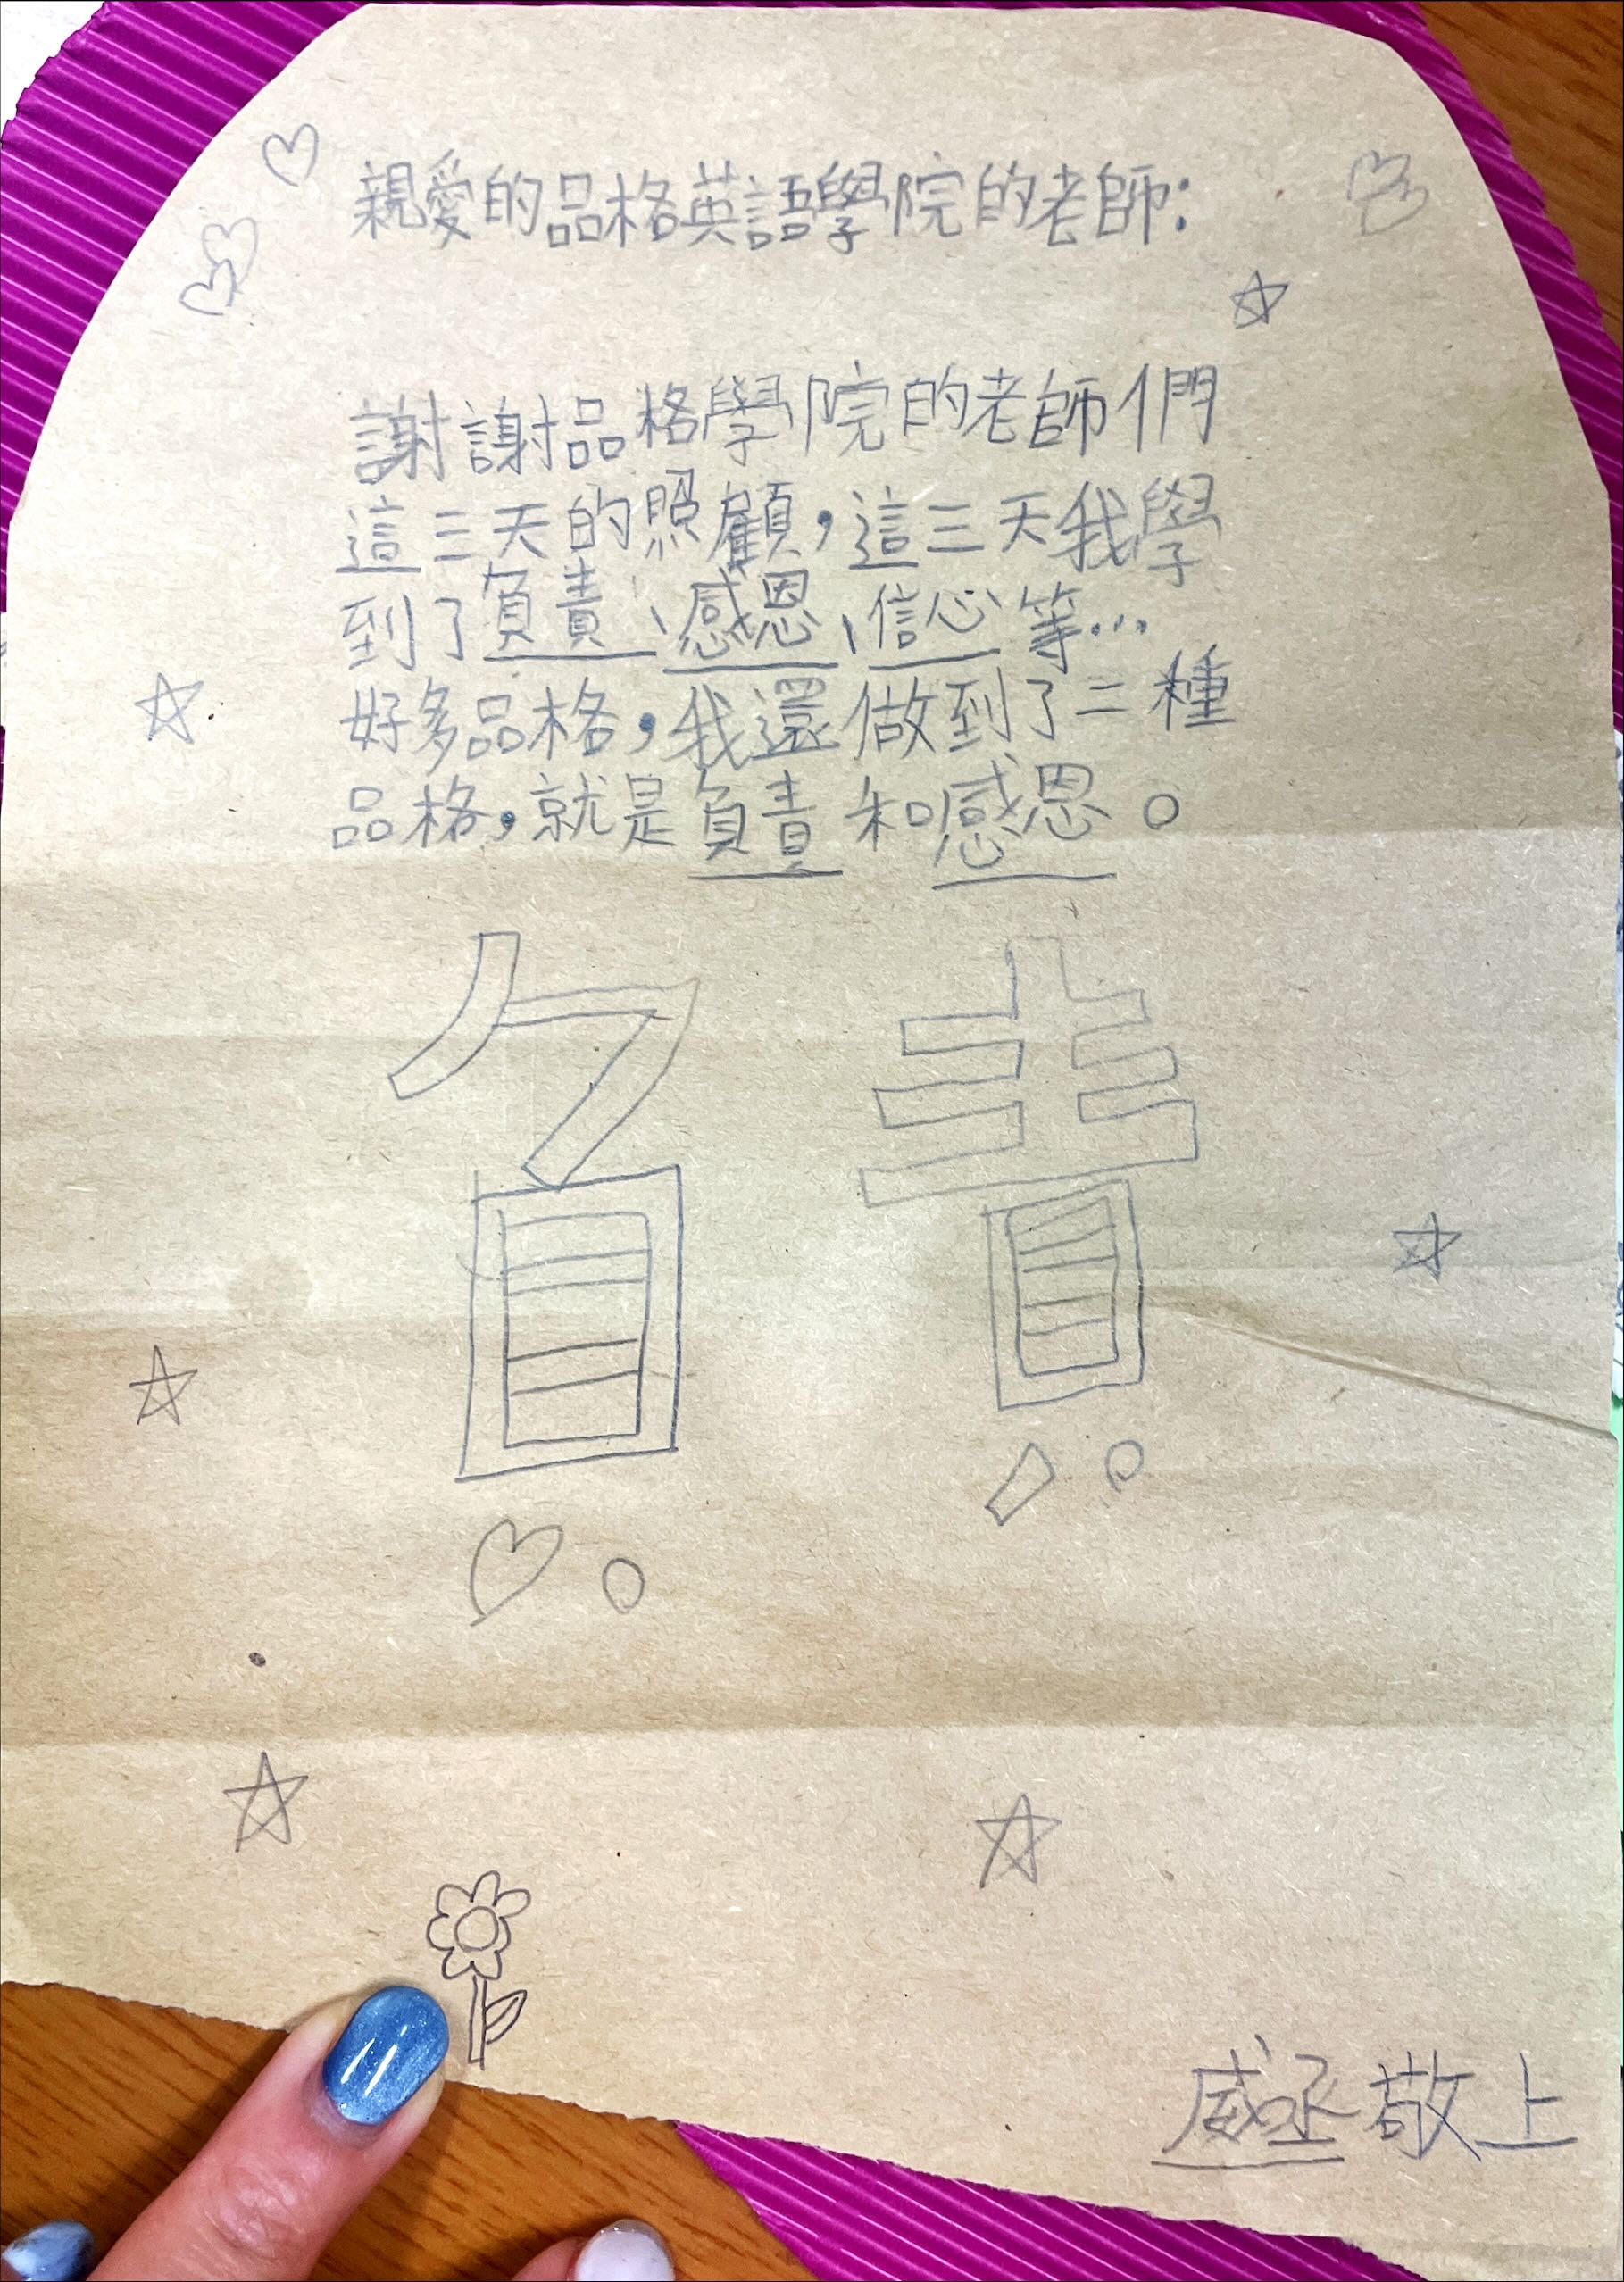 親愛的品格英語學院的老師:
謝謝品格學院的老師們
這三天的照顧，這三天我學
到了負責、感恩、信心等...
好多品格，我還做到了二種
品格，就是負責和感恩。
負責
威丞敬上